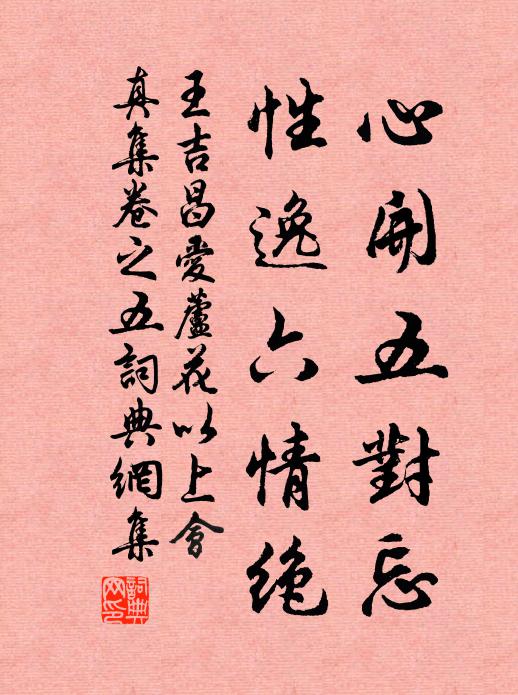 心開五對忘
性逸六情絶
王吉昌愛蘆花以上會
真集卷之五詞典網集
詞典网印